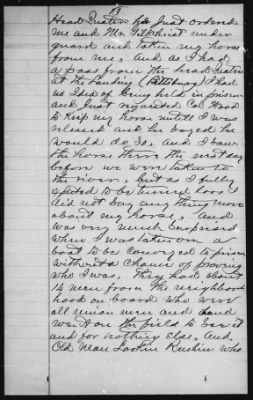 13
Head Quarters he Just ordered
me and Mr Gilchrist under
guard and taken my horse
from me, and as I had
a pass from the head Quarters
at the Landing (Pittsburg) I had
no Idea of being held in prison
and Just requested Col Hood
to Keep my horse untill I was
released and he said he
would do so, and I saw
the horse there the next day
before we were taken to
the river, But as I fully
expected to be turned loose I
did not say any thing more
about my horse, and
was very much surprised
when I was taken on a
boat to be conveyed to prison
without a chance of proving
who I was. They had about
14 men from the neighbor
hood on board who were
all union men and had
went on the field to see it
and for nothing else, and
Old Man Larkin Rushin who